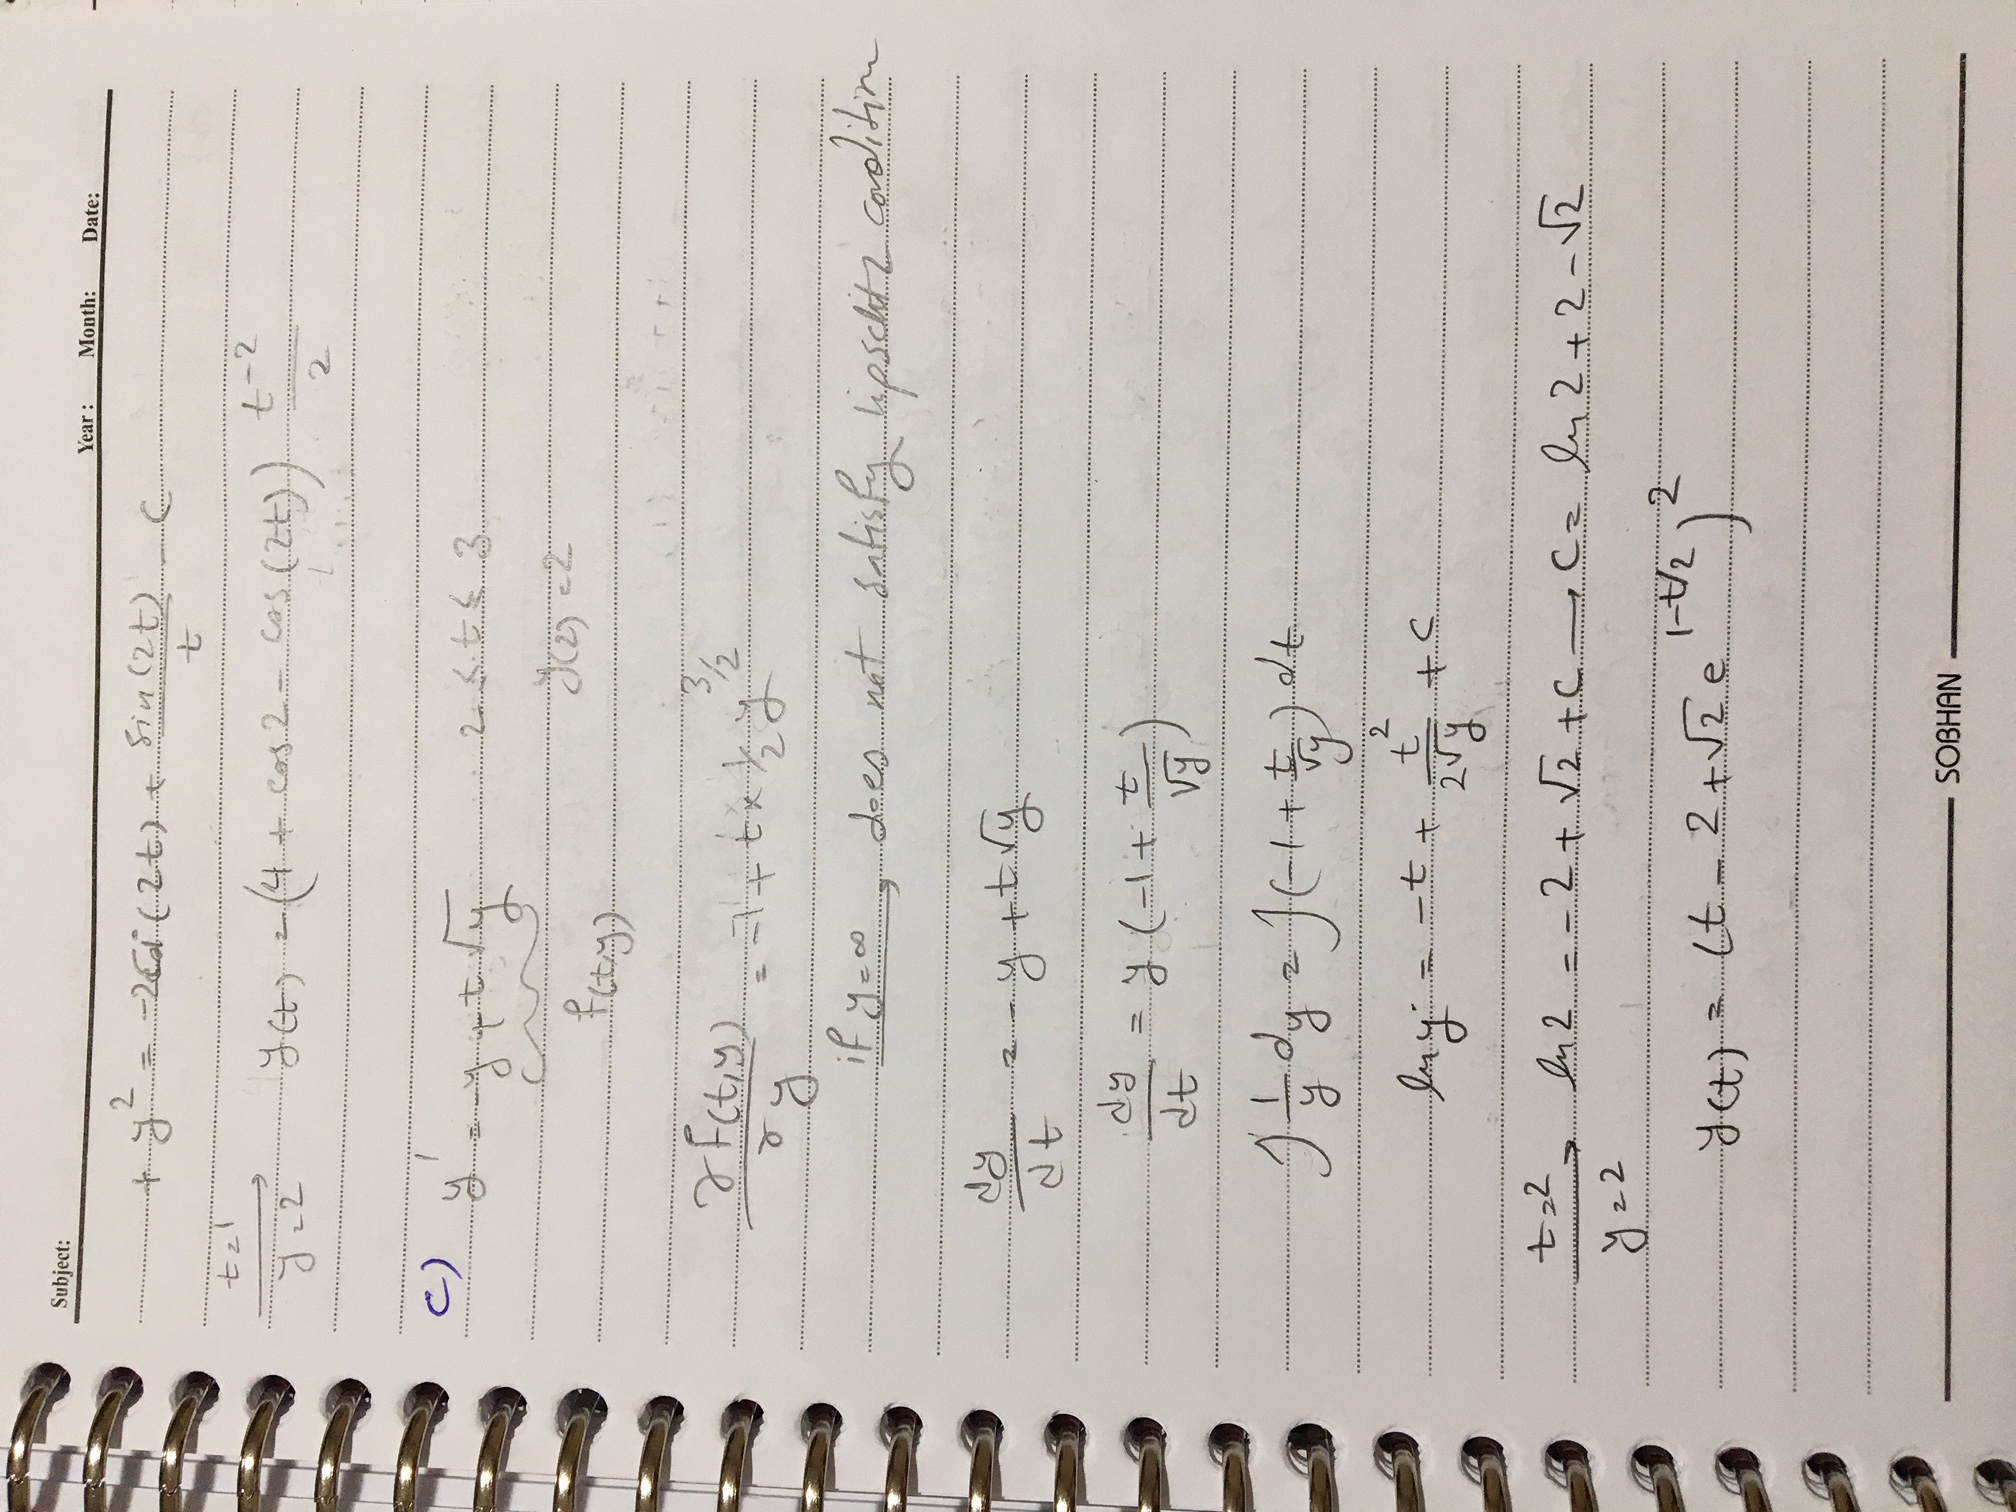 Subject: Year: Month: Date:
+ y² = -2 (2t) + sin(2t)/t - C
t=1
y=2 y(t) = (4 + cos2 - cos(2t)) t⁻²/2
c) y' = -y + t√y 2 ≤ t ≤ 3
f(t,y) y(2) = 2
∂f(t,y)/∂y = -1 + t × 1/2 y^3/2
if y=∞ → does not satisfy lipschtz condition
dy/dt = -y + t√y
dy/dt = y(-1 + t/√y)
∫ 1/y dy = ∫(-1 + t/√y) dt
ln y = -t + t²/2√y + C
t=2
y=2 → ln2 = -2 + √2 + C → C = ln2 + 2 - √2
y(t) = (t - 2 + √2 e^1-t/2)²
SOBHAN